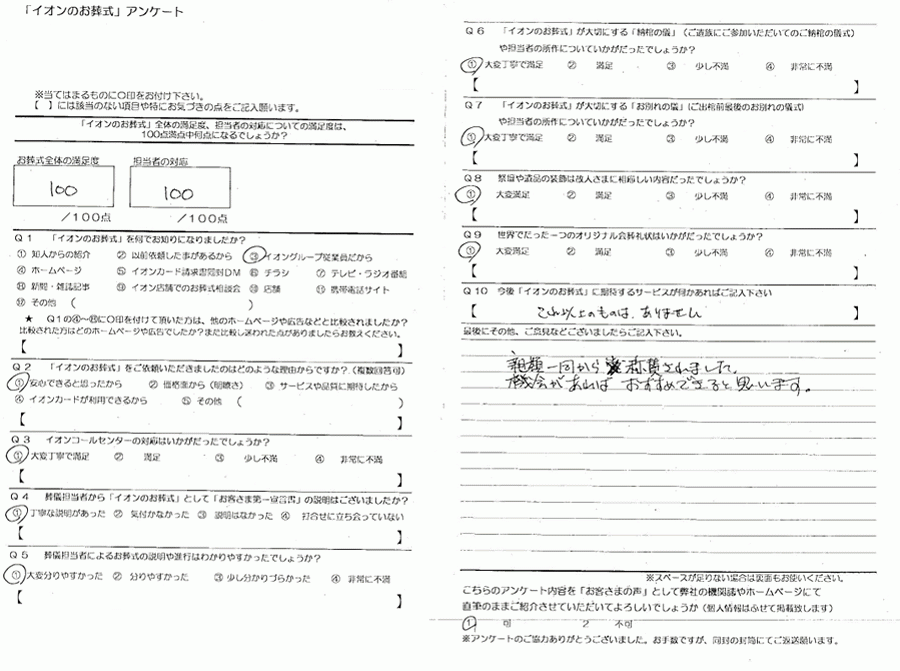 「イオンのお葬式」アンケート
※当てはまるものに○印をお付け下さい。
【 】には該当のない項目や特にお気づきの点をご記入願います。
「イオンのお葬式」全体の満足度、担当者の対応についての満足度は、
100点満点中何点になるでしょうか?
お葬式全体の満足度 担当者の対応
100 100
/100点 /100点
Q1 「イオンのお葬式」を何でお知りになりましたか?
① 知人からの紹介 ② 以前依頼した事があるから ③ イオングループ従業員だから
④ ホームページ ⑤ イオンカード請求書同封DM ⑥ チラシ ⑦ テレビ・ラジオ番組
⑧ 新聞・雑誌記事 ⑨ イオン店舗でのお葬式相談会 ⑩ 店舗 ⑪ 携帯電話サイト
⑫ その他 ( )
★ Q1の④~⑪に○印を付けて頂いた方は、他のホームページや広告などと比較されましたか?
比較された方はどのホームページや広告でしたか?また比較し迷われた点がありましたらお教えください。
【 】
Q2 「イオンのお葬式」をご依頼いただきましたのはどのような理由からですか?(複数回答可)
① 安心できると思ったから ② 価格面から(明瞭さ) ③ サービスや品質に期待したから
④ イオンカードが利用できるから ⑤ その他 ( )
【 】
Q3 イオンコールセンターの対応はいかがだったでしょうか?
① 大変丁寧で満足 ② 満足 ③ 少し不満 ④ 非常に不満
【 】
Q4 葬儀担当者から「イオンのお葬式」として「お客さま第一宣言書」の説明はございましたか?
① 丁寧な説明があった ② 気付かなかった ③ 説明はなかった ④ 打合せに立ち会っていない
【 】
Q5 葬儀担当者によるお葬式の説明や進行はわかりやすかったでしょうか?
① 大変分りやすかった ② 分りやすかった ③ 少し分かりづらかった ④ 非常に不満
【 】
Q6 「イオンのお葬式」が大切にする「納棺の儀」(ご遺族にご参加いただいてのご納棺の儀式)
や担当者の所作についていかがだったでしょうか?
① 大変丁寧で満足 ② 満足 ③ 少し不満 ④ 非常に不満
【 】
Q7 「イオンのお葬式」が大切にする「お別れの儀」(ご出棺前最後のお別れの儀式)
や担当者の所作についていかがだったでしょうか?
① 大変丁寧で満足 ② 満足 ③ 少し不満 ④ 非常に不満
【 】
Q8 祭壇や遺品の装飾は故人さまに相応しい内容だったでしょうか?
① 大変満足 ② 満足 ③ 少し不満 ④ 非常に不満
【 】
Q9 世界でたった一つのオリジナル会葬礼状はいかがだったでしょうか?
① 大変満足 ② 満足 ③ 少し不満 ④ 非常に不満
【 】
Q10 今後「イオンのお葬式」に期待するサービスが何かあればご記入下さい
【 これ以上のものは、ありません 】
最後にその他、ご意見などございましたらご記入下さい。
親類一同から 称賛されました。
機会があれば おすすめできると思います。
※スペースが足りない場合は裏面もお使いください。
こちらのアンケート内容を「お客さまの声」として弊社の機関誌やホームページにて
直筆のままご紹介させていただいてよろしいでしょうか(個人情報はふせて掲載致します)
1 可 2 不可
※アンケートのご協力ありがとうございました。お手数ですが、同封の封筒にてご返送願います。